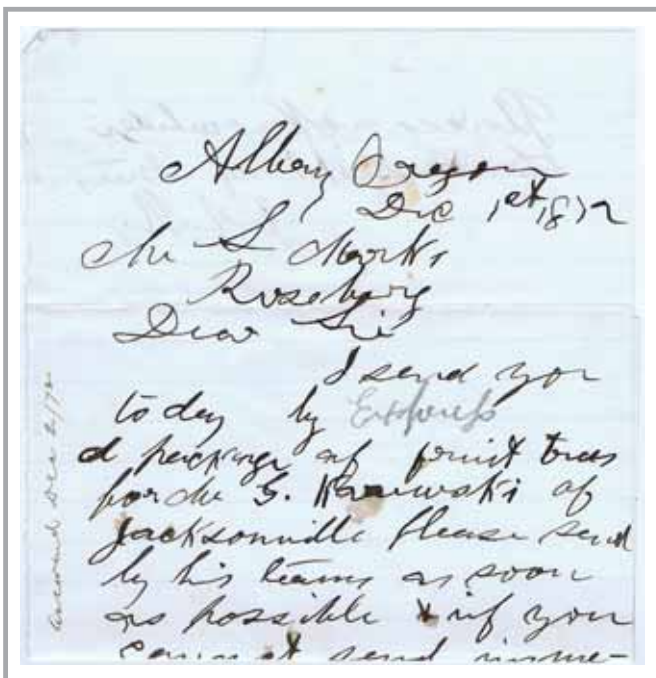 Albany Oregon
Dec 1st, 1872
Mr S Marks
Roseburg
Dear Sir
I send you
to day by Express
a package of fruit trees
for Mr G. Karewski of
Jacksonville Please send
by his teams as soon
as possible & if you
cannot send imme-
Dec 2/72